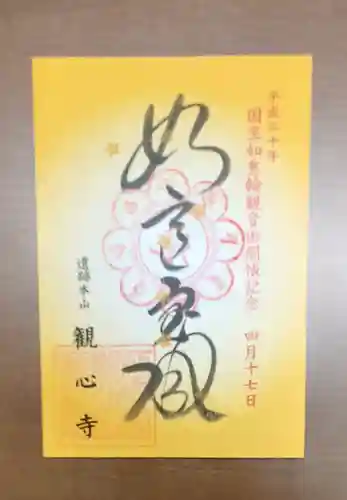 平成三十年
国宝如意輪観音御開帳記念 四月十七日
如意宝殿
遺跡本山
観心寺